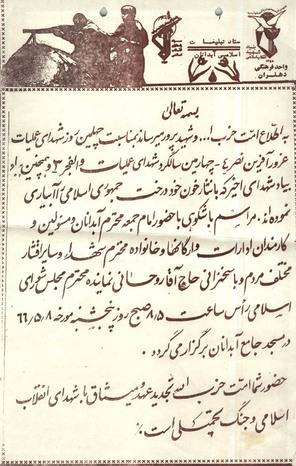 ستاد تبلیغات
اسلامی آبدانان
واحد فرهنگی
دهلران
بسمه تعالی
به اطلاع امت حزب ا... و شهید پرور میرساند بمناسبت چهلمین روز شهدای عملیات
غرور آفرین نصر ۴ - چهارمین سالگرد شهدای عملیات والفجر ۳ و همچنین یاد و
بیاد شهدای اخیر که با نثار خون خود درخت جمهوری اسلامی را آبیاری
نموده اند. مراسم باشکوهی با حضور امام جمعه محترم آبدانان و مسئولین و
کارمندان ادارات و ارگانها و خانواده محترم شهداء و سایر اقشار
مختلف مردم و با سخنرانی حاج آقا روحانی نماینده محترم مجلس شورای
اسلامی رأس ساعت ۸/۵ صبح روز پنجشنبه مورخه ۶۶/۵/۸
در مسجد جامع آبدانان برگزار می گردد.
حضور شما امت حزب الله تجدید عهد و میثاق با شهدای انقلاب
اسلامی و جنگ تحمیلی است.